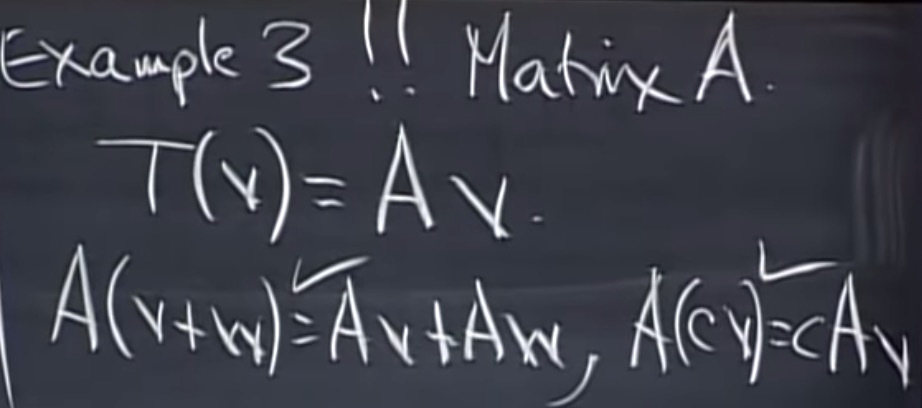 Example 3 !! Matrix A.
T(v) = Av.
A(v+w) = Av + Aw, A(cv) = cAv